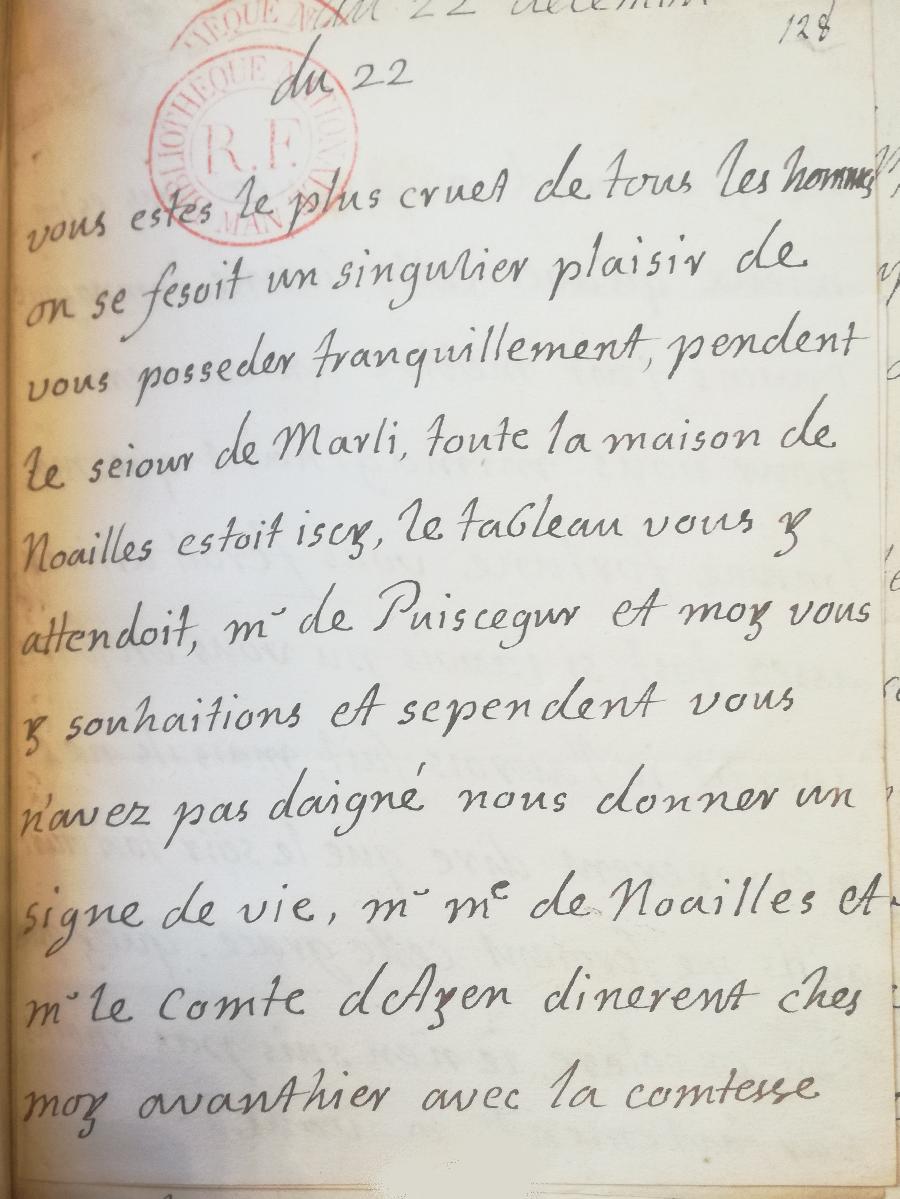 du 22 decembre
128
du 22
BIBLIOTHEQUE NATIONALE
R.F.
MAN
vous estes le plus cruel de tous les hommes
on se fesoit un singulier plaisir de
vous posseder tranquillement, pendent
le seiour de Marli, toute la maison de
Noailles estoit iscy, le tableau vous y
attendoit, mr de Puiscegur et moy vous
y souhaitions et sependent vous
n'avez pas daigné nous donner un
signe de vie, mr me de Noailles et
mr le Comte d Ayen dinerent ches
moy avanthier avec la comtesse